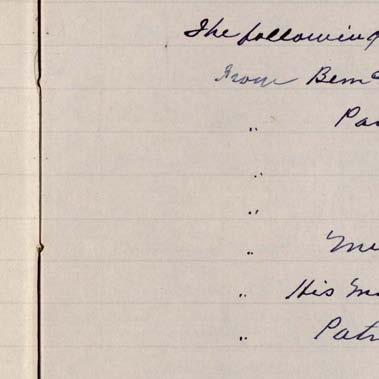 The following
From Bem
" Pa
"
"
" Me
" His M
" Patr